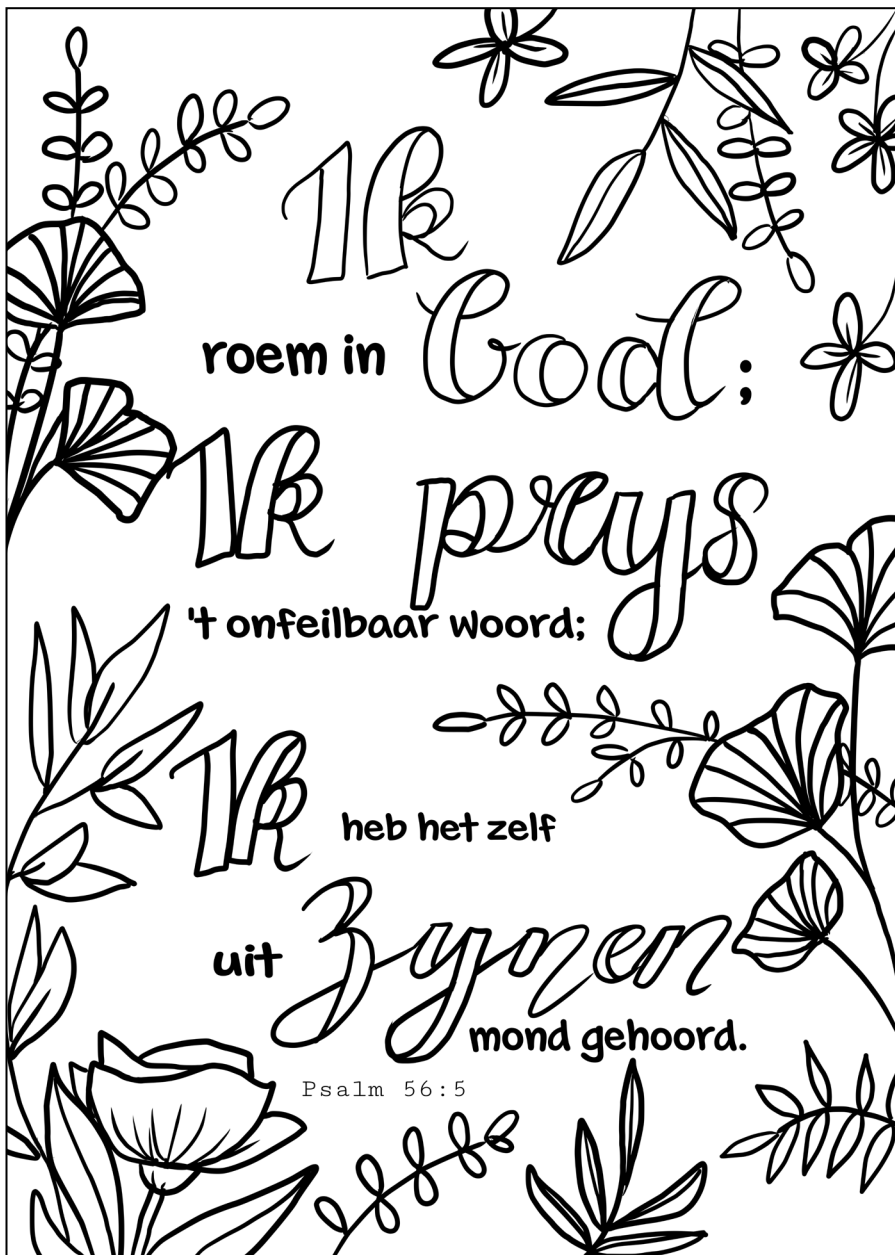 Ik
roem in God;
Ik prys
't onfeilbaar woord;
Ik heb het zelf
uit Zynen
mond gehoord.
Psalm 56:5